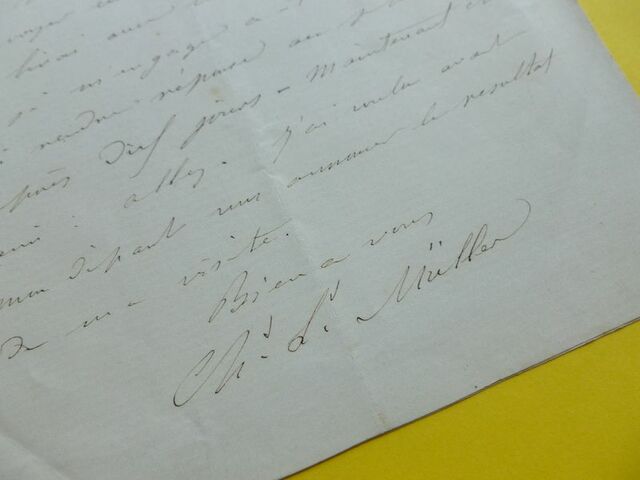 je m'engage a
rendre réponse au
après dix jours - Maintenant
allez. J'ai voulu avant
mon départ vous annoncer le resultat
de ma visite.
Bien a vous
Ch. L. Müller